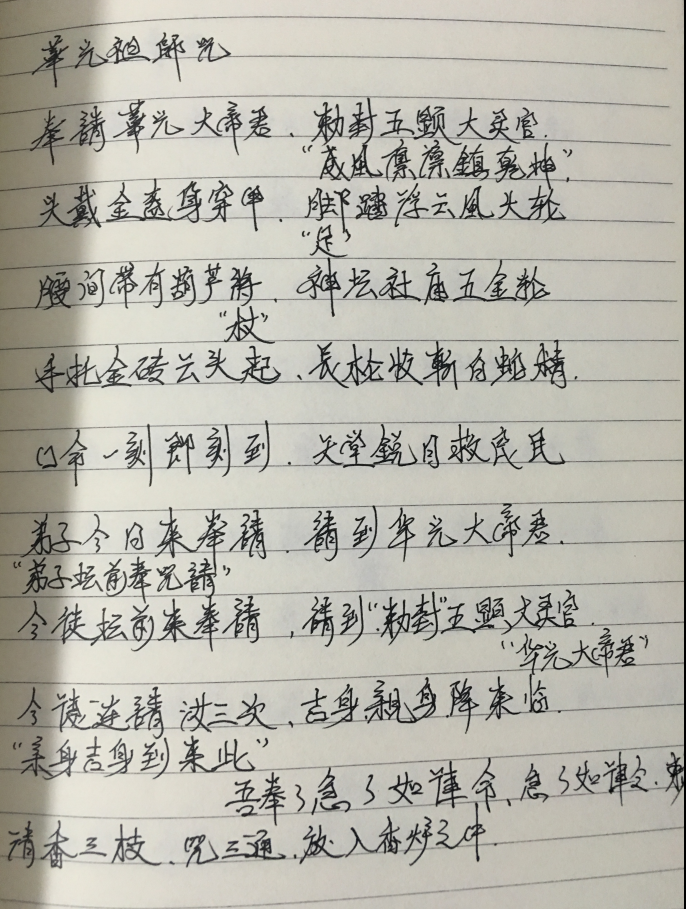 華光祖師咒
奉請華光大帝君、勅封五顕大灵官.
"威風凛凛鎮乾坤"
头戴金盔身穿甲、脚踏浮云風火轮
"足"
腰间带有葫芦将、神坛社庙五金轮
"杖"
手托金砖云头起、長枪收斬白蛇精.
口令一刻即刻到、天堂鋭目救良民
弟子今日来奉請、請到华光大帝君.
"弟子坛前奉咒請"
今徒坛前来奉請,請到"勅封"五顕大灵官.
"华光大帝君"
今連請汝三次、吉身親身降来临.
"亲身吉身到来此"
吾奉了急了如律令、急了如律令.勅
清香三枝、咒三通、放入香炉之中.